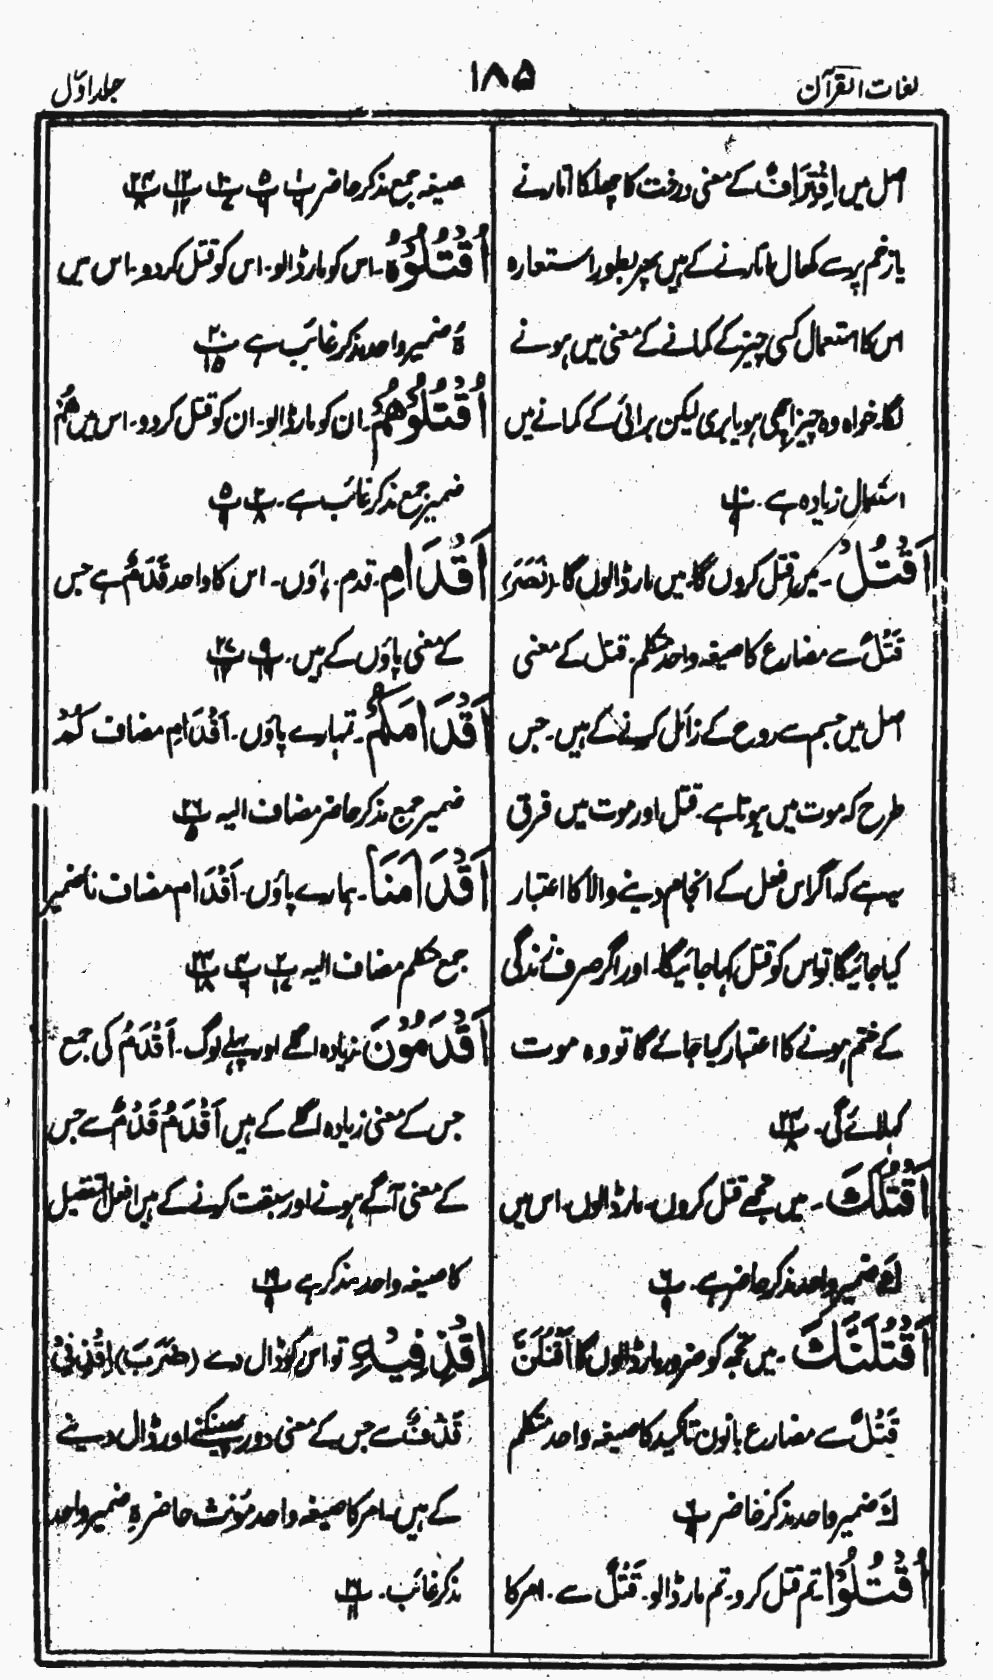 لغات القرآن
۱۸۵
جلد اوّل
اصل میں اِقْتِرَافٌ کے معنی درخت کا چھلکا اتارنے
یا زخم پر سے کھال اتارنے کے ہیں پھر بطور استعارہ
اس کا استعمال کسی چیز کے کمانے کے معنی میں ہونے
لگا۔ خواہ وہ چیز اچھی ہو یا بری لیکن برائی کے کمانے میں
استعمال زیادہ ہے۔
اَقْتُلُ۔ میں قتل کروں گا۔ میں مار ڈالوں گا۔ (نَصَرَ)
قَتْلٌ سے مضارع کا صیغہ واحد متکلم۔ قتل کے معنی
اصل میں جسم سے روح کے زائل کرنے کے ہیں۔ جس
طرح کہ موت میں ہوتا ہے۔ قتل اور موت میں فرق
یہ ہے کہ اگر اس فعل کے انجام دینے والا کا اعتبار
کیا جائیگا تو اس کو قتل کہا جائیگا۔ اور اگر صرف زندگی
کے ختم ہونے کا اعتبار کیا جائے گا تو وہ موت
کہلائے گی۔
اَقْتُلَكَ۔ میں تجھے قتل کروں۔ مار ڈالوں۔ اس میں
كَ ضمیر واحد مذکر حاضر ہے۔
اَقْتُلَنَّكَ۔ میں تجھ کو ضرور مار ڈالوں گا اَقْتُلَنَّ
قَتْلٌ سے مضارع بانون تاکید کا صیغہ واحد متکلم
كَ ضمیر واحد مذکر حاضر
اُقْتُلُوْا۔ تم قتل کرو۔ تم مار ڈالو۔ قَتْلٌ سے۔ امر کا
صیغہ جمع مذکر حاضر
اُقْتُلُوْهُ۔ اس کو مار ڈالو۔ اس کو قتل کر دو۔ اس میں
هُ ضمیر واحد مذکر غائب ہے
اُقْتُلُوْهُمْ۔ ان کو مار ڈالو۔ ان کو قتل کر دو۔ اس میں هُمْ
ضمیر جمع مذکر غائب ہے۔
اَقْدَام۔ قدم۔ پاؤں۔ اس کا واحد قَدَمٌ ہے جس
کے معنی پاؤں کے ہیں۔
اَقْدَامَكُمْ۔ تمہارے پاؤں۔ اَقْدَام مضاف كُمْ
ضمیر جمع مذکر حاضر مضاف الیہ
اَقْدَامَنَا۔ ہمارے پاؤں۔ اَقْدَام مضاف نا ضمیر
جمع متکلم مضاف الیہ
اَقْدَمُوْنَ زیادہ اگلے اور پہلے لوگ۔ اَقْدَمُ کی جمع
جس کے معنی زیادہ اگلے کے ہیں اَقْدَمُ قَدْمٌ سے جس
کے معنی آگے ہونے اور سبقت کرنے کے ہیں افعل التفضیل
کا صیغہ واحد مذکر ہے
اِقْذِفِيْهِ تو اس کو ڈال دے (ضَرَبَ) اِقْذِفِیْ
قَذْفٌ سے جس کے معنی دور پھینکنے اور ڈال دینے
کے ہیں۔ امر کا صیغہ واحد مؤنث حاضر هِ ضمیر واحد
مذکر غائب۔